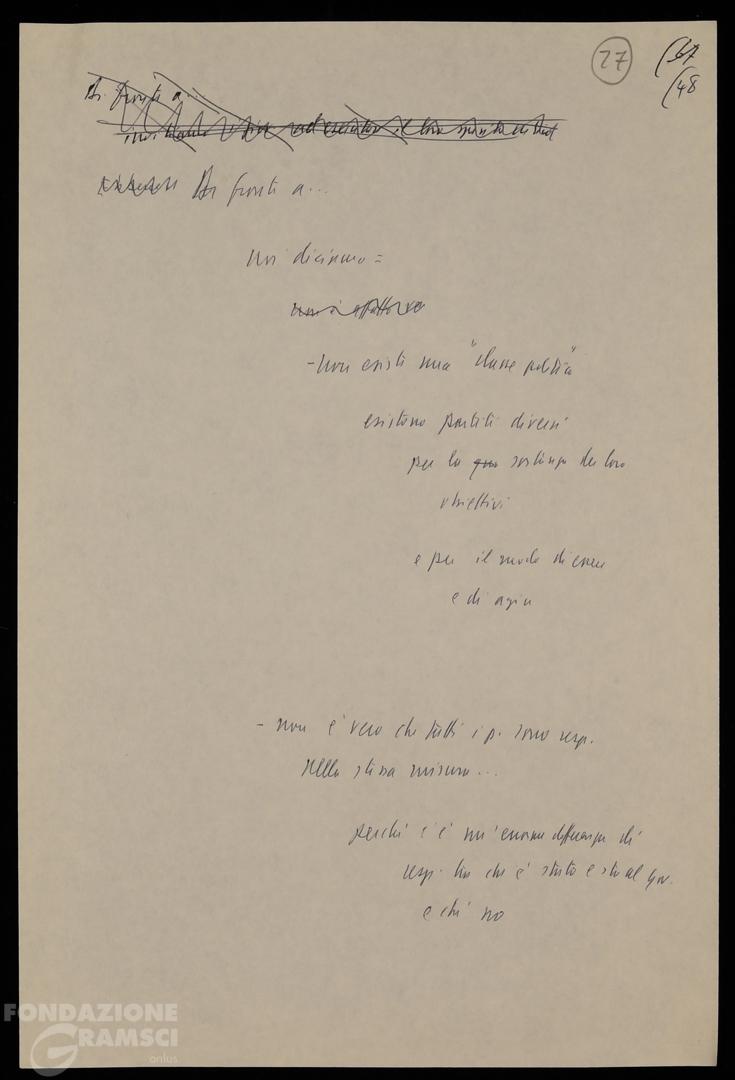 27
(67
(48
Di fronte a...
Di fronte a...
noi diciamo =
- non esiste una "classe politica"
esistono partiti diversi
per la sostanza dei loro
obiettivi
e per il modo di essere
e di agire
- non è vero che tutti i p. sono resp.
nella stessa misura...
perché c'è un'enorme differenza di
resp. tra chi è stato e sta al gov.
e chi no
FONDAZIONE
GRAMSCI
onlus